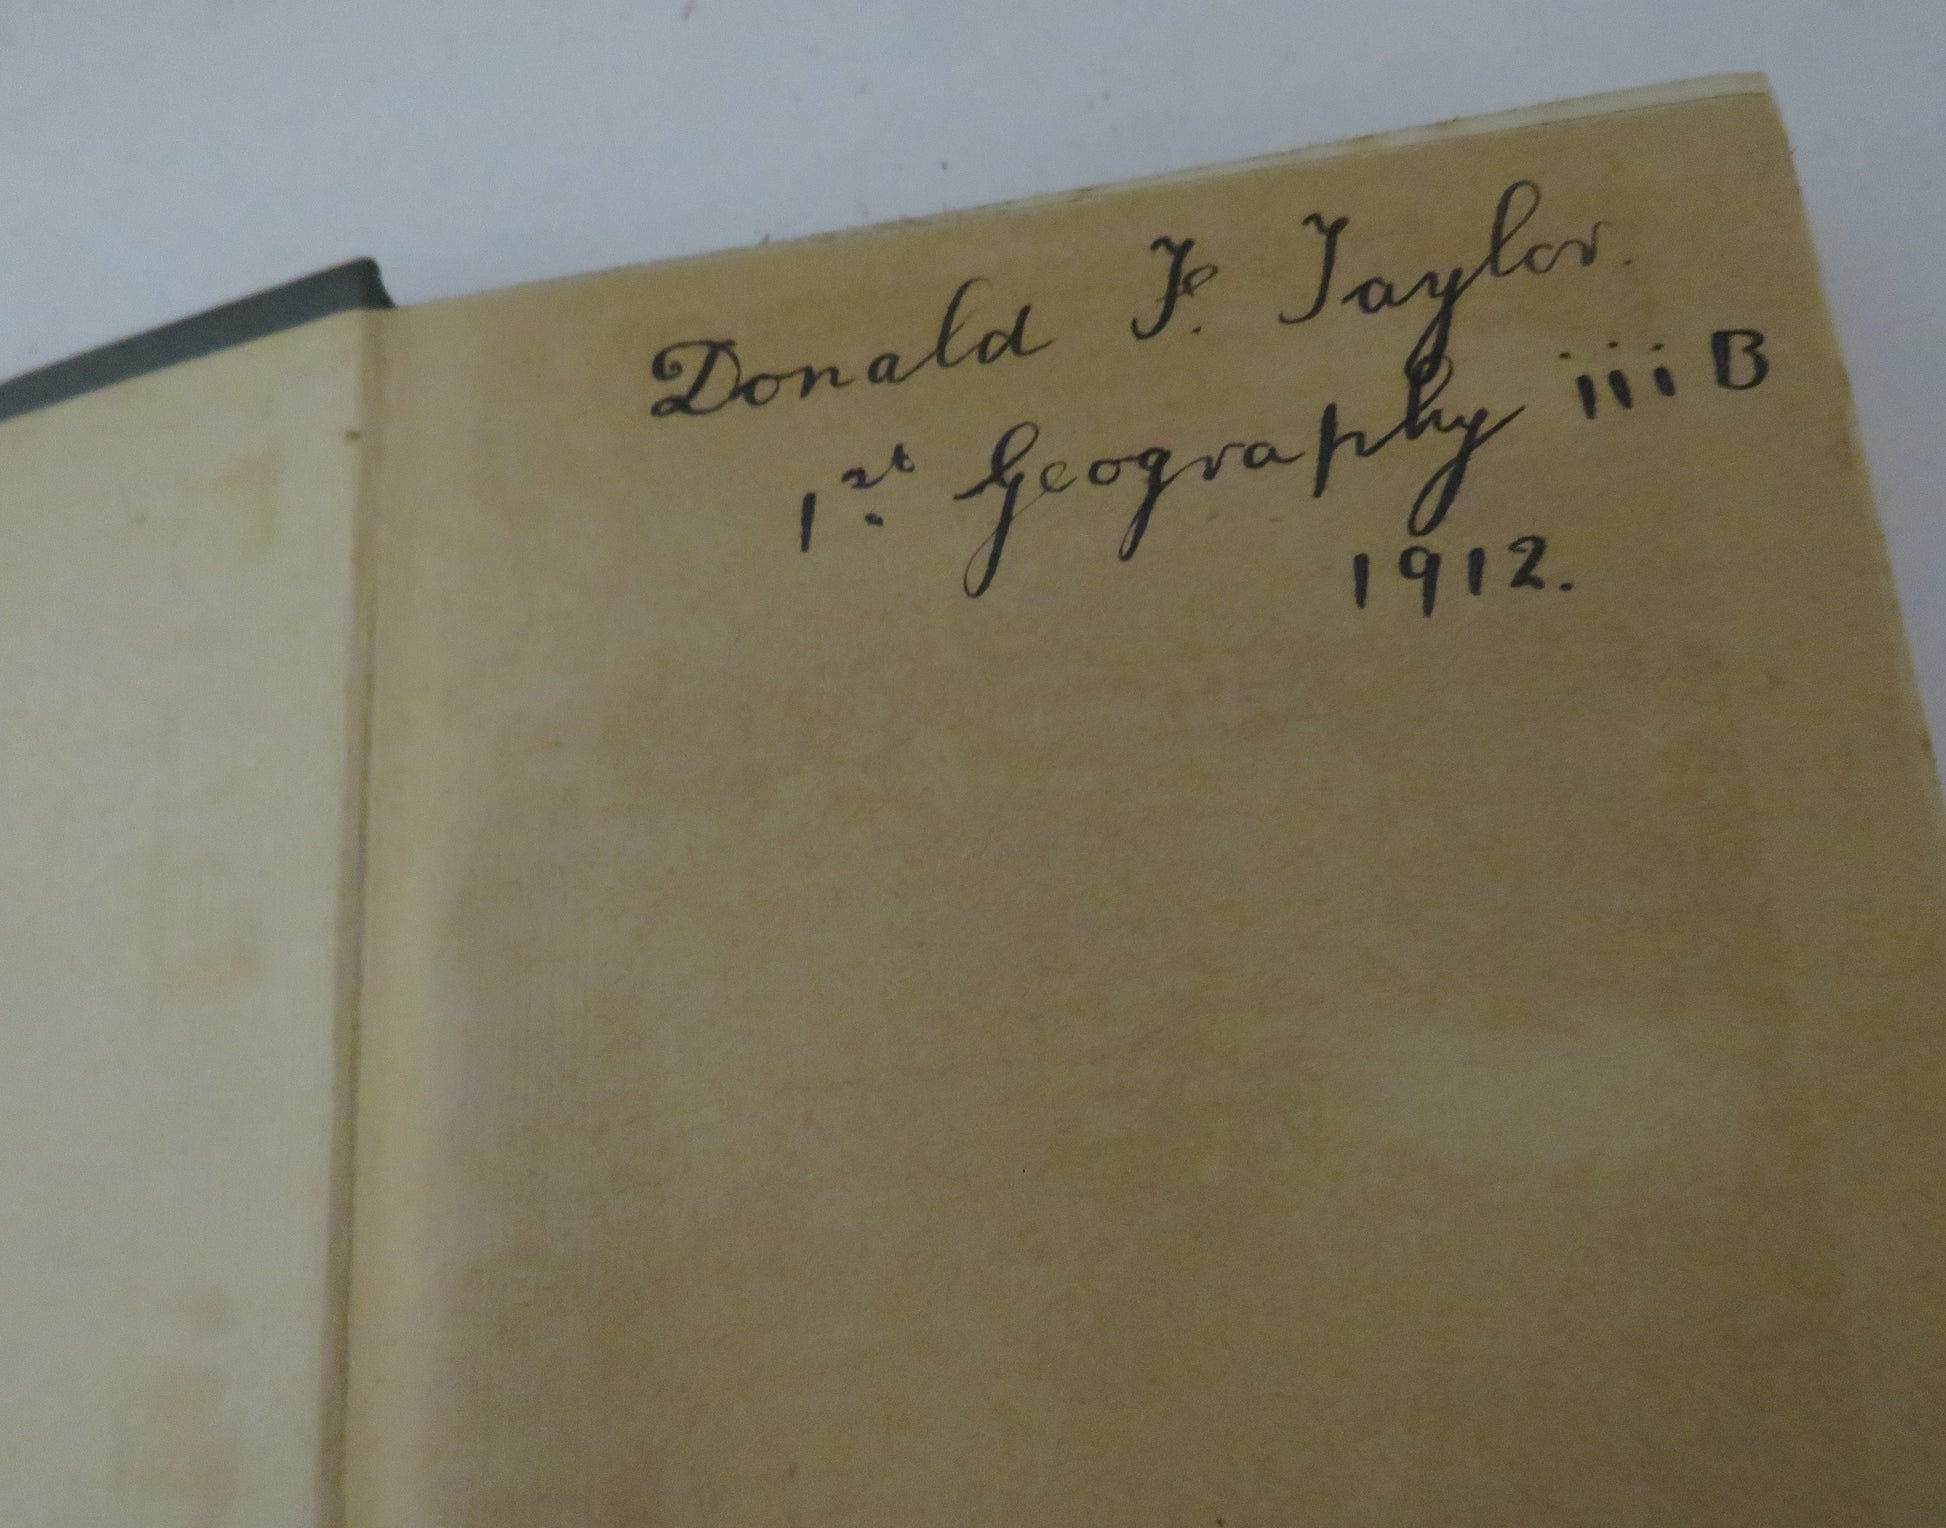 Donald F. Taylor.
1st Geography iii B
1912.